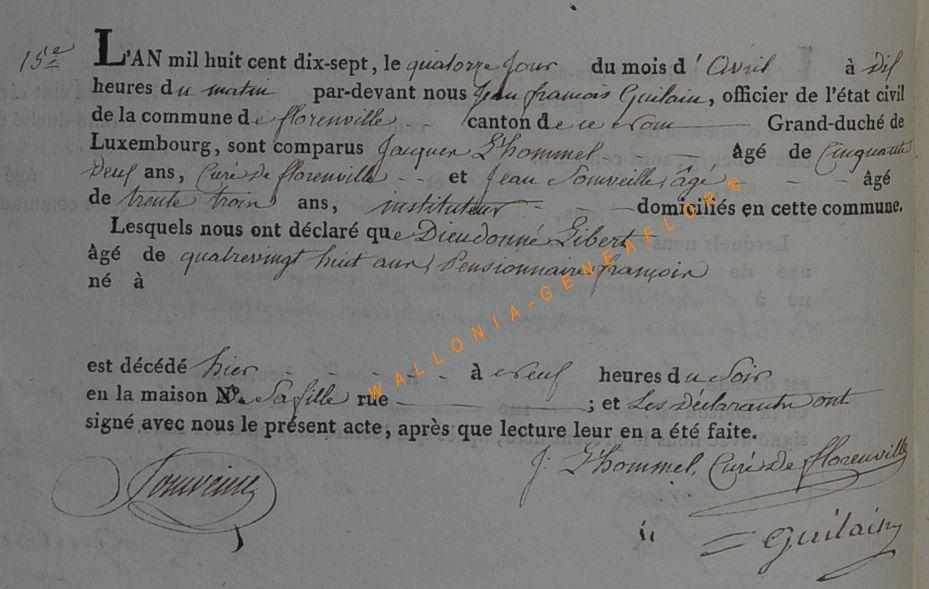 15e L'AN mil huit cent dix-sept, le quatorze Jour du mois d' Avril à dix
heures du matin par-devant nous Jean françois Guilain, officier de l'état civil
de la commune de florenville canton de ce nom Grand-duché de
Luxembourg, sont comparus Jacques L'hommel âgé de Cinquante
Deux ans, Curé de florenville et Jean âgé âgé
de trente trois ans, instituteur domiciliés en cette commune.
Lesquels nous ont déclaré que Dieudonné Gibert
âgé de quatrevingt huit ans, Pensionnaire françois
né à
est décédé hier à neuf heures du Soir
en la maison De Sa fille rue ; et Les Déclarants ont
signé avec nous le présent acte, après que lecture leur en a été faite.
J: L'hommel, Curé de florenville
Guilain
WALLONIA-GENEAFLOR ©